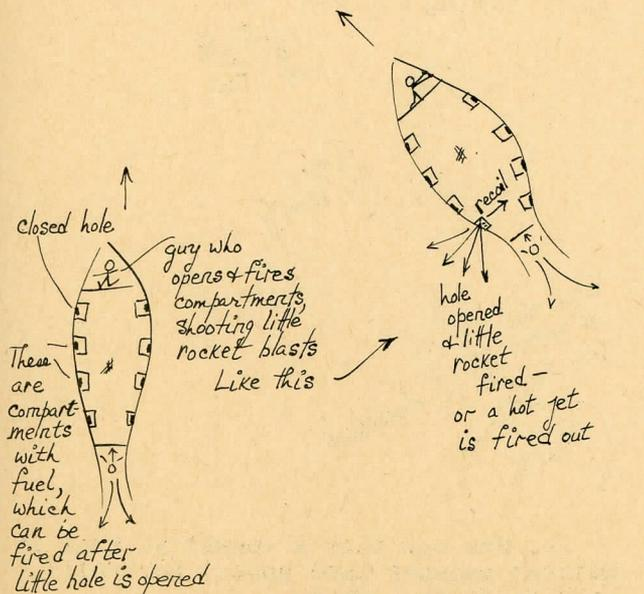 closed hole
guy who
opens & fires
compartments,
shooting little
rocket blasts
Like this
These
are
compart-
ments
with
fuel,
which
can be
fired after
little hole is opened
recoil
hole
opened
& little
rocket
fired —
or a hot jet
is fired out